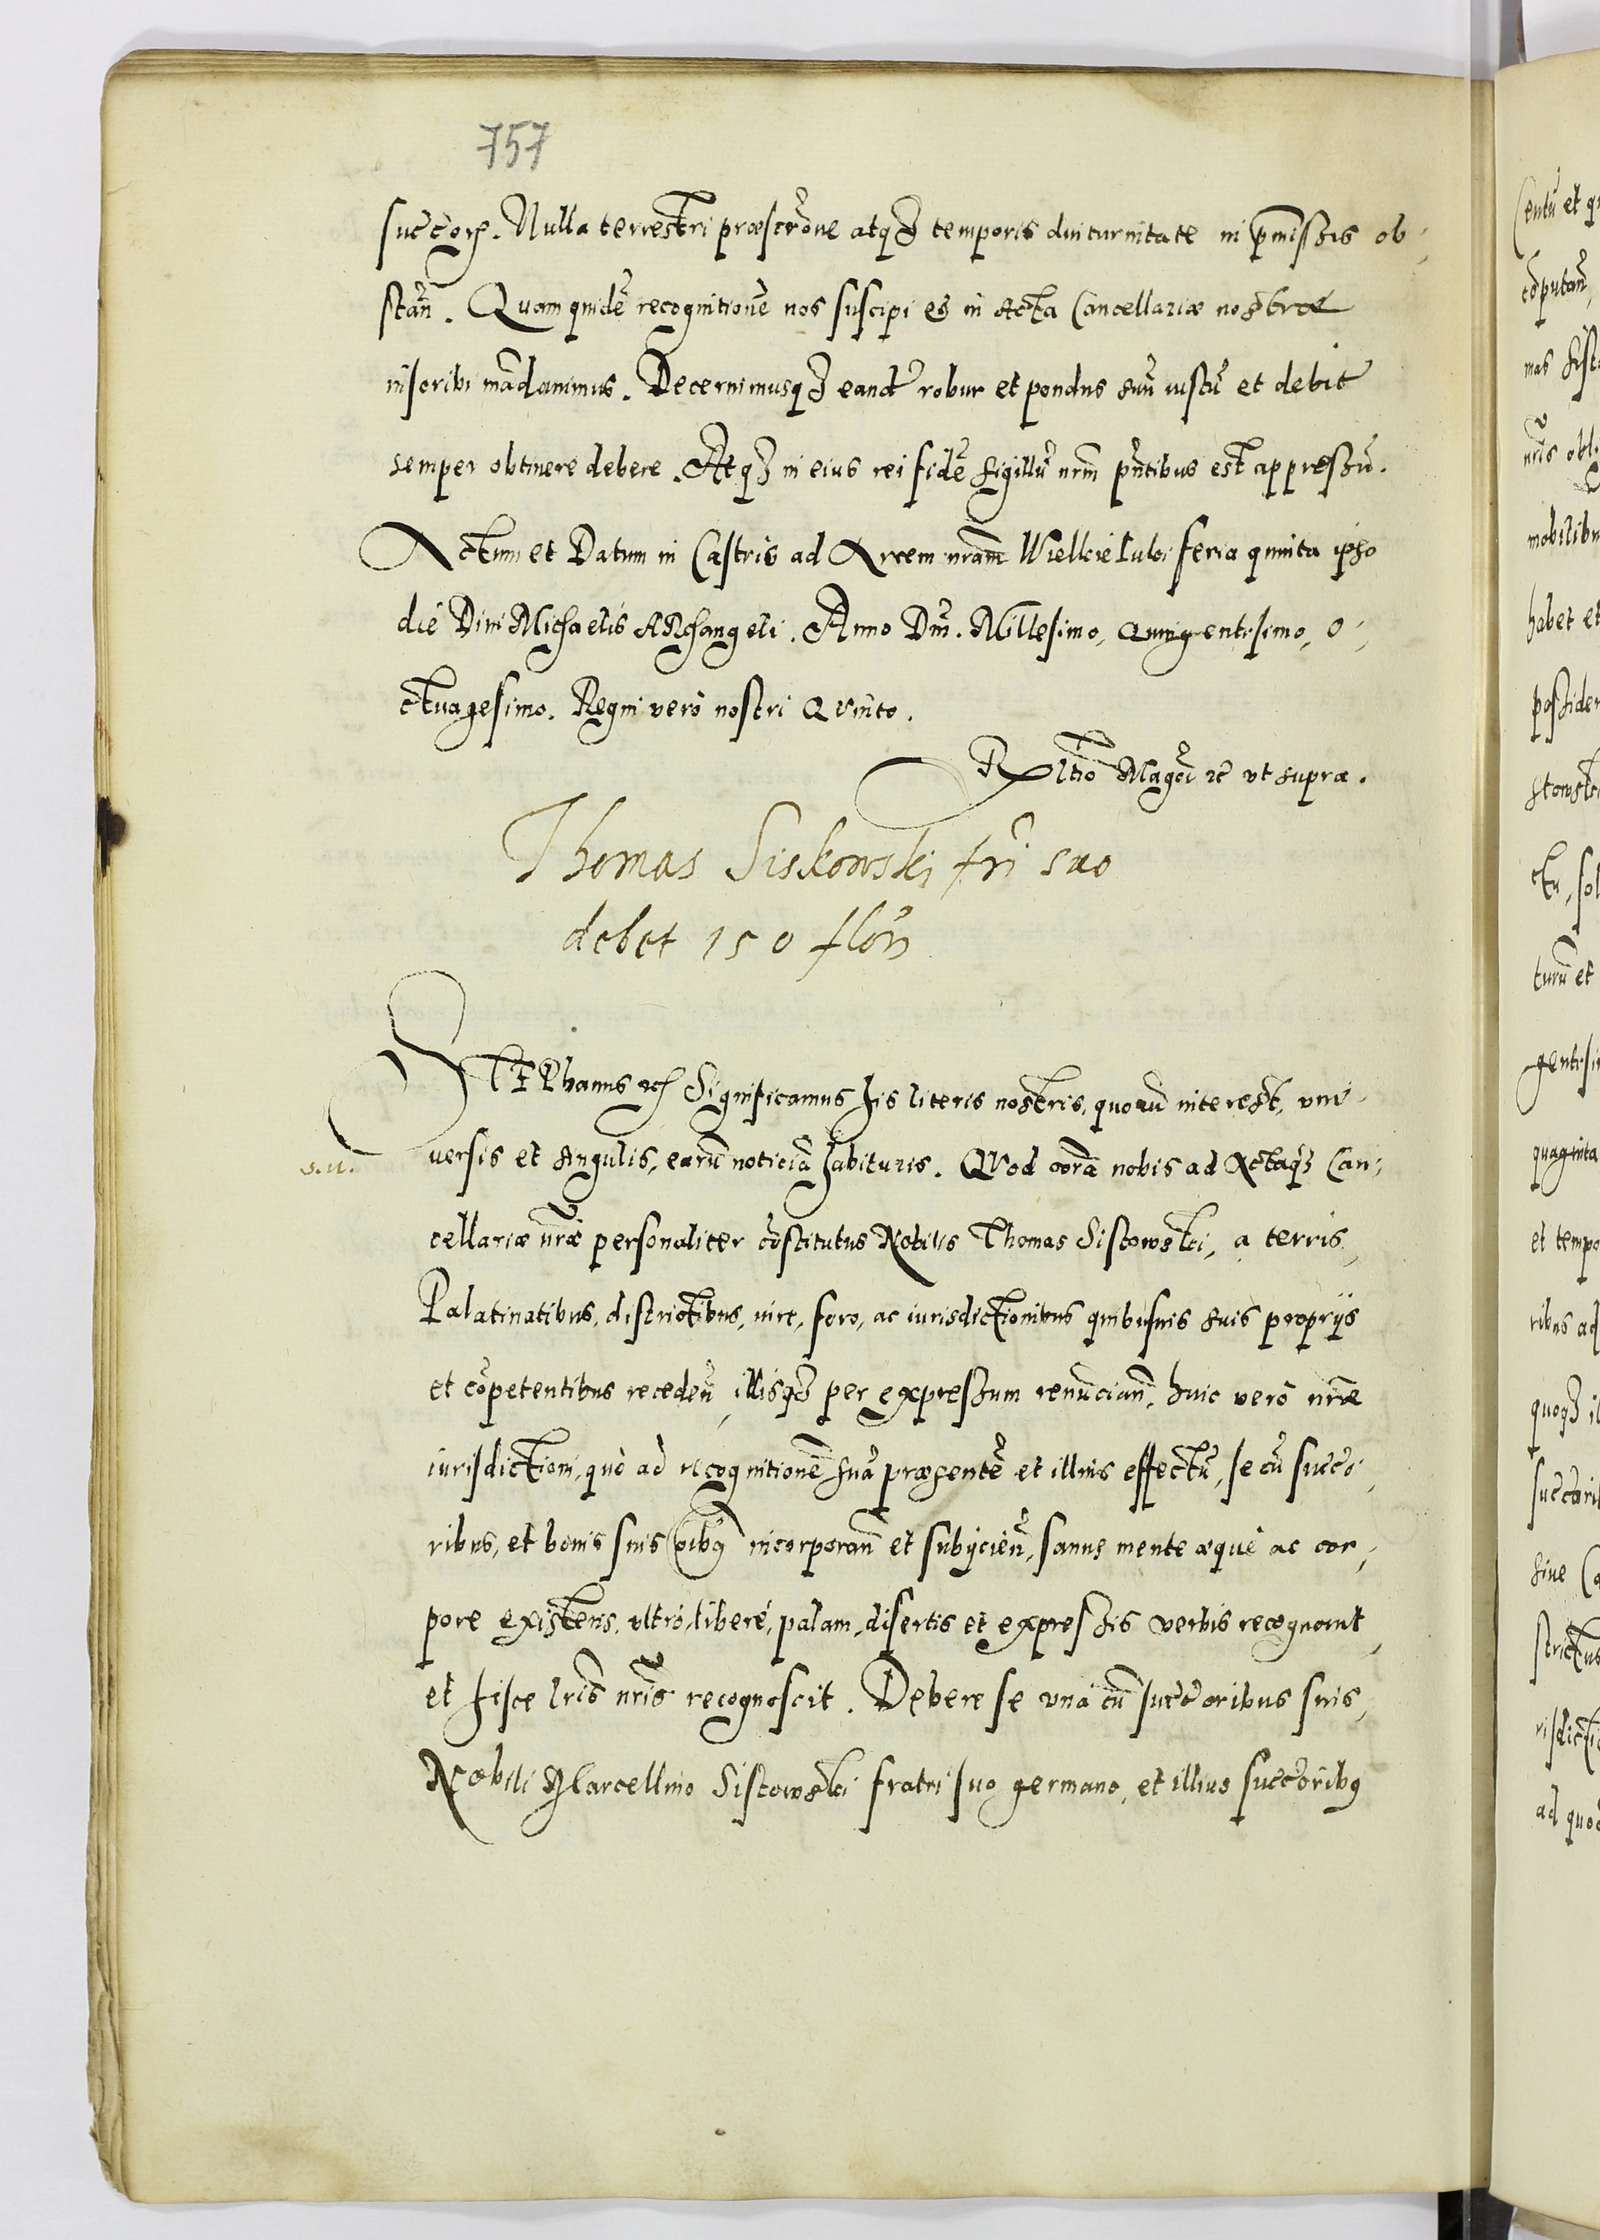 757
succorꝝ. Nulla terrestri præscrōne atqȝ temporis diuturnitate in p̄missis ob-
stan̄. Quam quidē recognitionē nos suscipi et in Acta Cancellariæ nostræ
inscribi mādauimus. Decernimusqȝ eandē robur et pondus suū iustū et debitū
semper obtinere debere. Atqȝ in eius rei fidē sigillū nr̄m pn̄tibus est appressū.
Actum et Datum in Castris ad Arcem nr̄am Wielkie Luki feria quinta ipso
die Diui Michaelis Archangeli. Anno Dn̄i. Millesimo, Quingentesimo, O-
ctuagesimo. Regni verò nostri Quinto.
Rłtio Mag̃ci ꝛc̃ vt supra.
Thomas Siskowski frī suo
debet 150 flōn
STEPhanus ꝛcꝭ Significamus his literis nostris, quorū interest, vni-
s.u.
uersis et singulis, earū noticiā habituris. Quod corā nobis ad Actaqȝ Can-
cellariæ nr̄æ personaliter cōstitutus Nobilis Thomas Siskowski, a terris,
Palatinatibus, districtibus, iure, foro, ac iurisdictionibus quibusuis suis proprijs
et cōpetentibus receden̄, illisqȝ per expressum renuncian̄, huic verò nr̄æ
iurisdictioni, quò ad recognitionē suā præsentē et illius effectū, se cū succo-
ribus, et bonis suis oībꝯ incorporan̄ et subijcien̄, sanus mente æquè ac cor-
pore existens, vltrò, liberè, palam, disertis et expressis verbis recognouit,
et hisce lr̄is nr̄is recognoscit. Debere se vnà cū succoribus suis,
Nobili Marcellino Siskowski fratri suo germano, et illius succoribꝯ